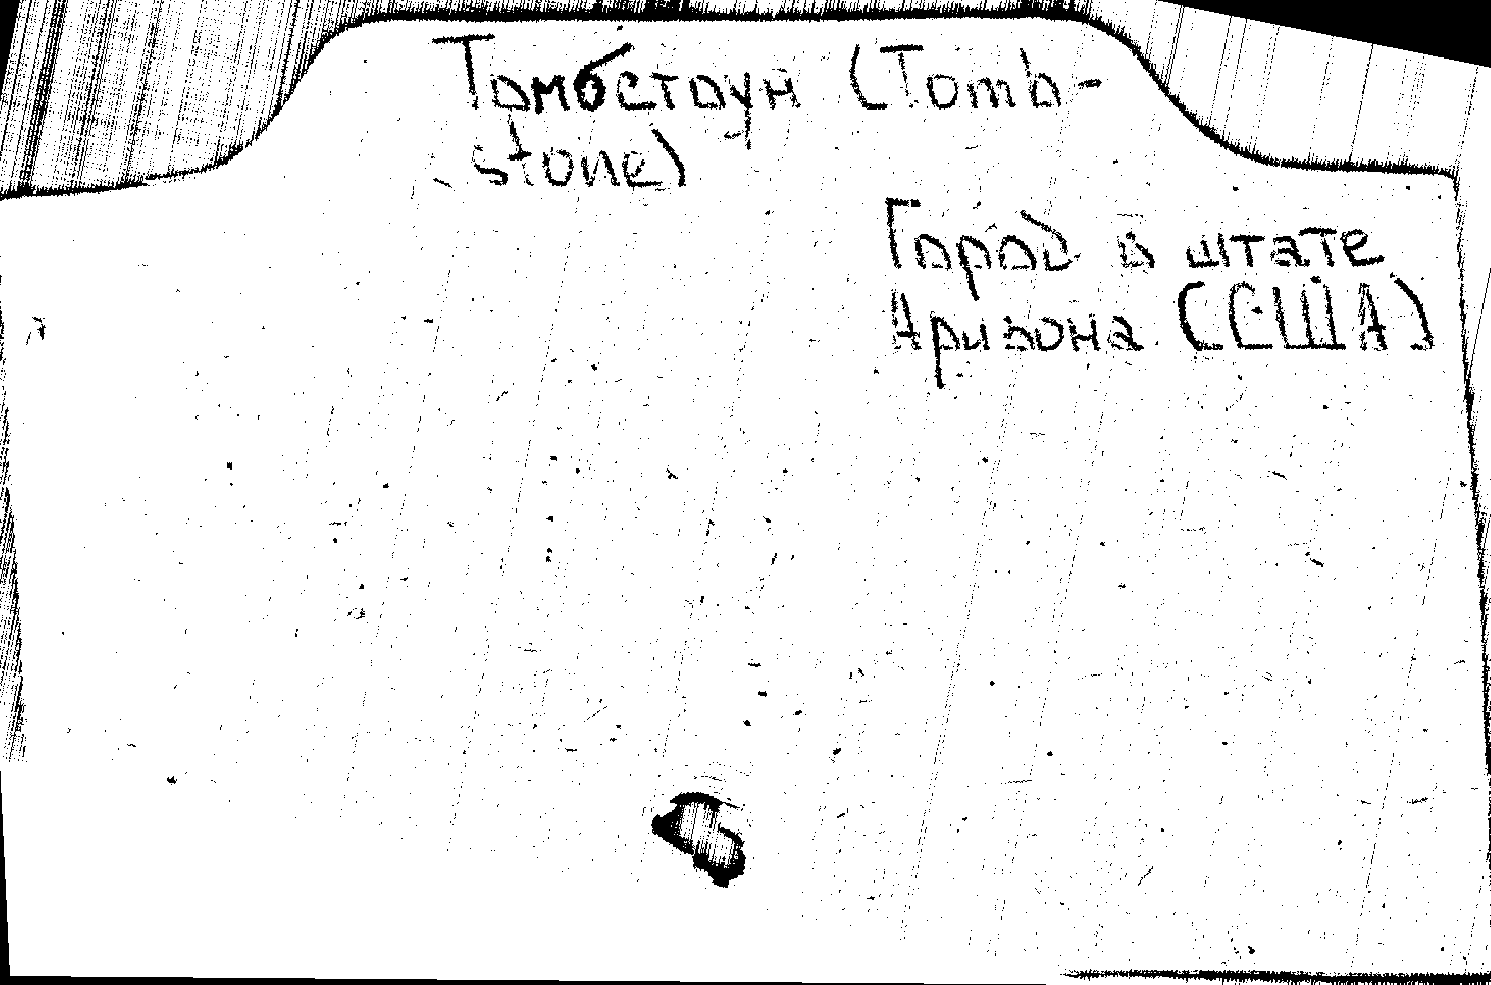 Томбстоун (Tomb-
stone)
Город в штате
Аризона (США)